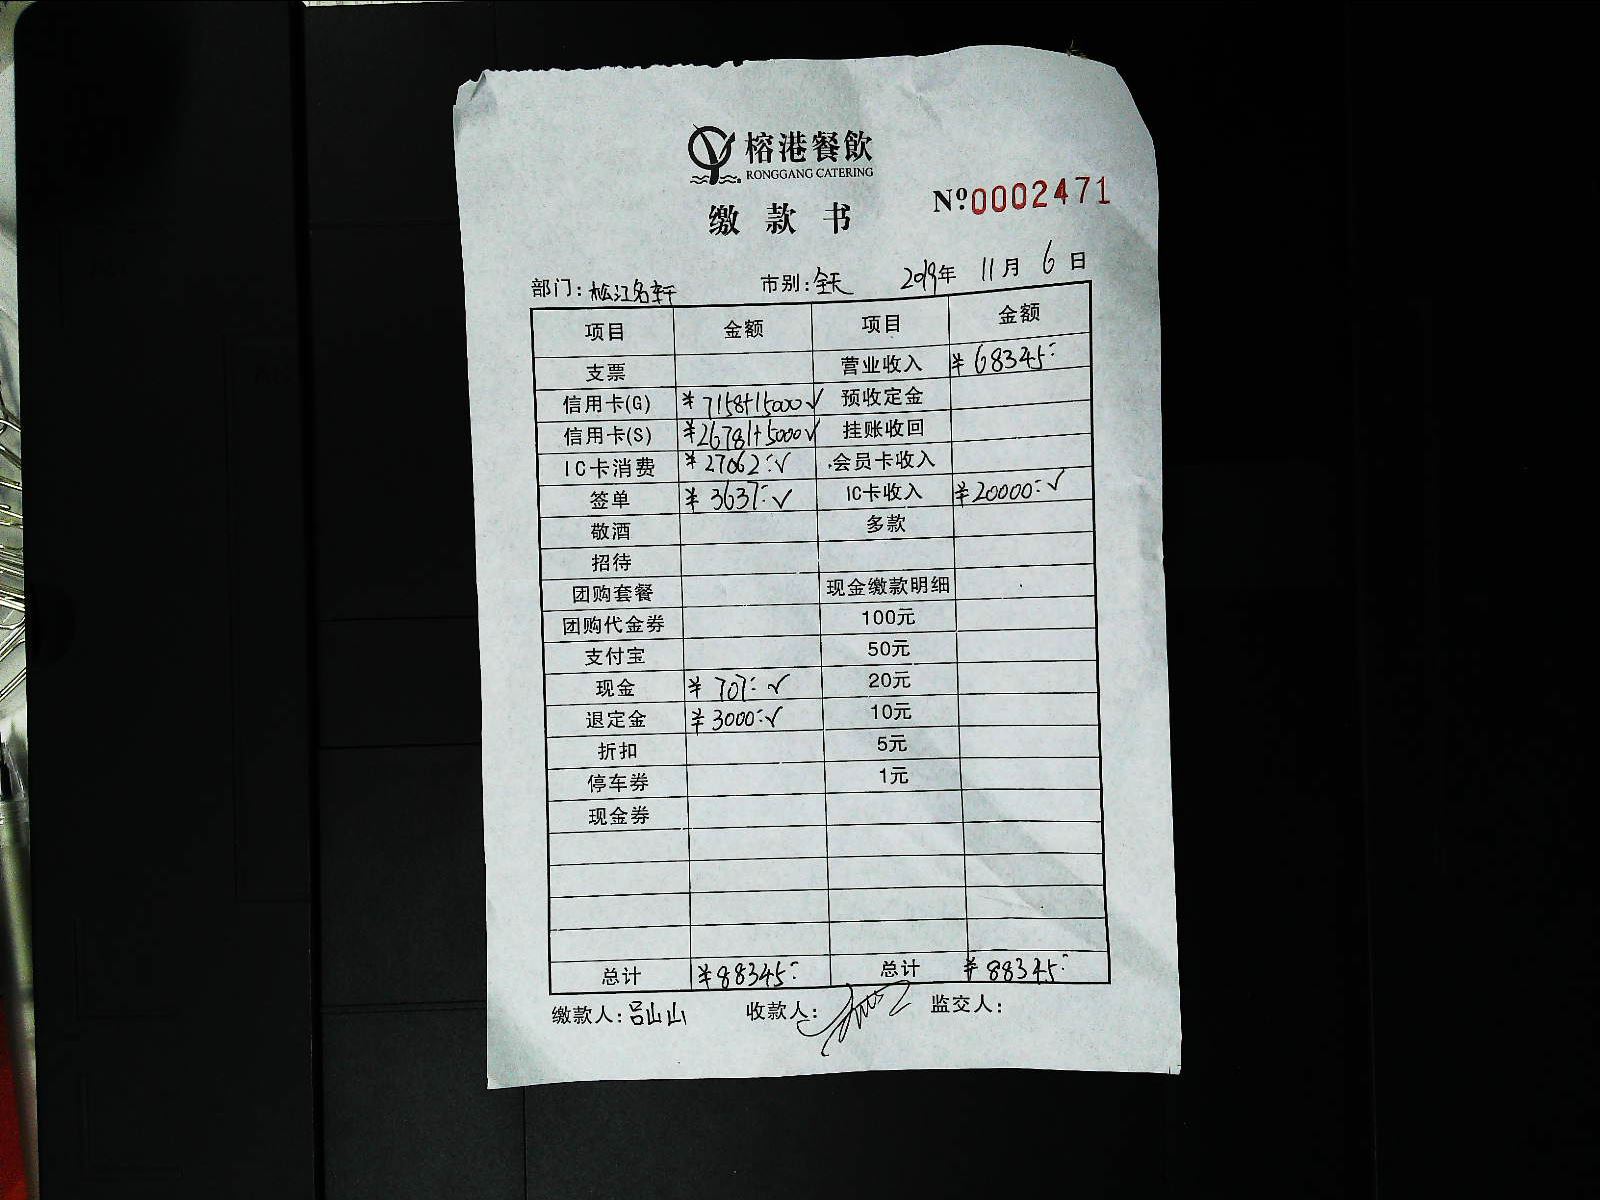 榕港餐飲
RONGGANG CATERING
缴款书
Nº0002471
部门:松江名轩 市别:全天 2019年 11月 6日
项目 金额 项目 金额
支票 营业收入 ¥68345:
信用卡(G) ¥7158+15000√ 预收定金
信用卡(S) ¥26781+5000√ 挂账收回
IC卡消费 ¥27062:√ 会员卡收入
签单 ¥3637:√ IC卡收入 ¥20000:√
敬酒 多款
招待
团购套餐 现金缴款明细
团购代金券 100元
支付宝 50元
现金 ¥707:√ 20元
退定金 ¥3000:√ 10元
折扣 5元
停车券 1元
现金券
总计 ¥88345: 总计 ¥88345:
缴款人:吕山山 收款人: 监交人: